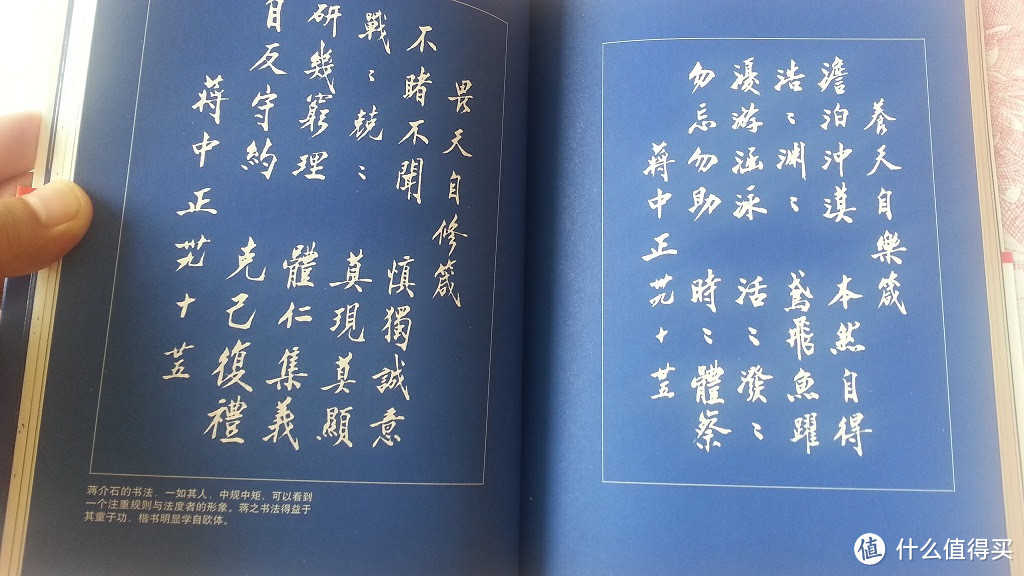 畏天自修箴
不睹不聞 慎獨誠意
戰〻兢〻 莫現莫顯
研幾窮理 體仁集義
自反守約 克己復禮
蔣中正 卅九 十 廿五
蒋介石的书法，一如其人，中规中矩，可以看到
一个注重规则与法度者的形象。蒋之书法得益于
其童子功，楷书明显学自欧体。
養天自樂箴
澹泊沖漠 本然自得
浩〻淵〻 鳶飛魚躍
優游涵泳 活〻潑〻
勿忘勿助 時〻體察
蔣中正 卅九 十 廿五
值 什么值得买